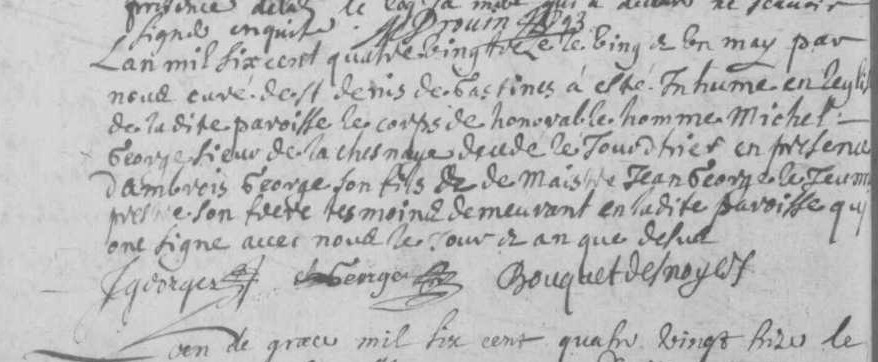 presence de la le Roy sa mere qui a declaré ne scavoir
signé enquis Drouin 1693
Lan mil six cent quatre vingt treze le ving & un may par
nous curé de st denis de Gastines à esté Inhumé en leglise
de ladite paroisse le corps de honorable homme Michel
George sieur de la chesnaye decedé le Jour d hier en presence
dambrois George son fils & de Maistre Jean George le Jeune
prestre son frere tesmoins demeurant en ladite paroisse qui
ont signé avec nous le Jour & an que dessus
J george George Bouquet desnoyers
Lan de grace mil six cent quatre vingt trize le